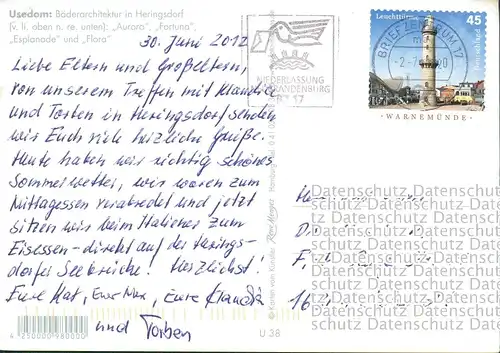 Usedom: Bäderarchitektur in Heringsdorf
(v. li. oben n. re. unten): „Aurora“, „Fortuna“,
„Esplanade“ und „Flora“
30. Juni 2012
Liebe Eltern und Großeltern,
von unserem Treffen mit Klaudia
und Torben in Heringsdorf senden
wir Euch viele herzliche Grüße.
Heute haben wir richtig schönes
Sommerwetter, wir waren zum
Mittagessen verabredet und jetzt
sitzen wir beim Italiener zum
Eisessen - direkt auf der Herings-
dorfer Seebrücke! Herzlichst!
Eure Kat, Euer Max, Eure Klaudia
und Torben
4 250000 980000
U 38
NIEDERLASSUNG
BRANDENBURG
BZ 17
Leuchttürme
45
Deutschland
WARNEMÜNDE
BRIEFZENTRUM 17
© Karin von Kunde
Datenschutz Datenschutz
Datenschutz Datenschutz
Datenschutz Datenschutz
Datenschutz Datenschutz
Datenschutz Datenschutz
16